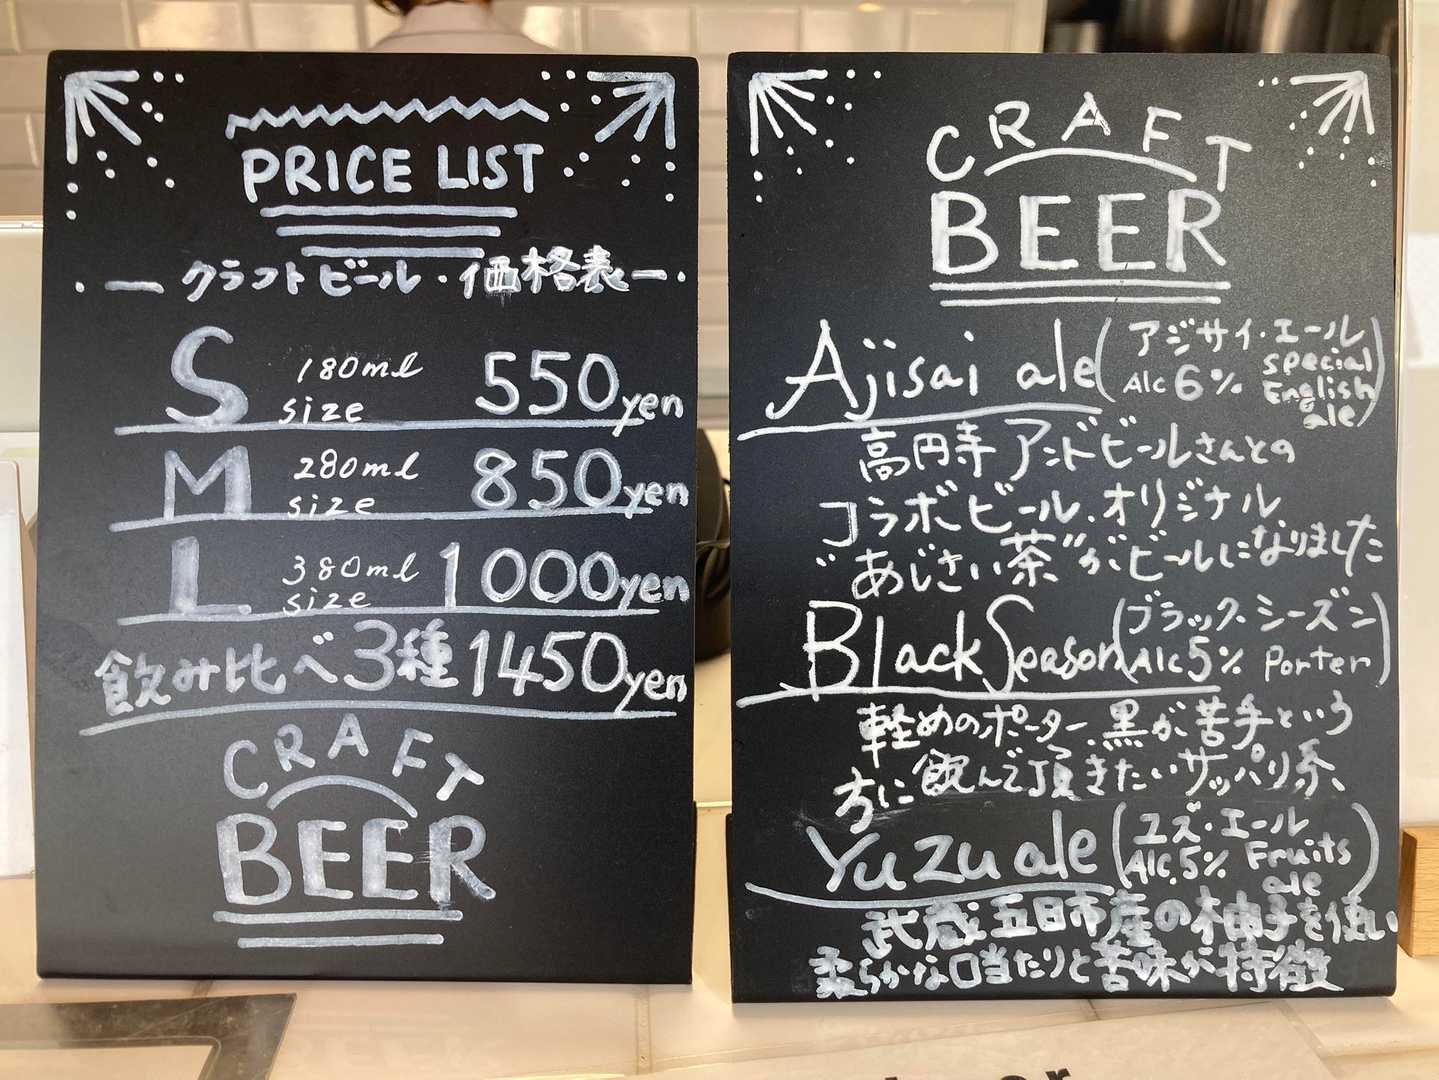 PRICE LIST
クラフトビール・価格表
S 180ml size 550yen
M 280ml size 850yen
L 380ml size 1000yen
飲み比べ3種 1450yen
CRAFT
BEER
CRAFT
BEER
Ajisai ale (アジサイ・エール Alc 6% special English ale)
高円寺アンドビールさんとの
コラボビール.オリジナル
"あじさい茶"がビールになりました
Black Season (ブラックシーズン Alc 5% Porter)
軽めのポーター.黒が苦手という
方に飲んで頂きたいサッパリ系、
Yuzu ale (ユズ・エール Alc.5% Fruits ale)
武蔵五日市産の柚子を使い
柔らかな口当たりと苦味が特徴